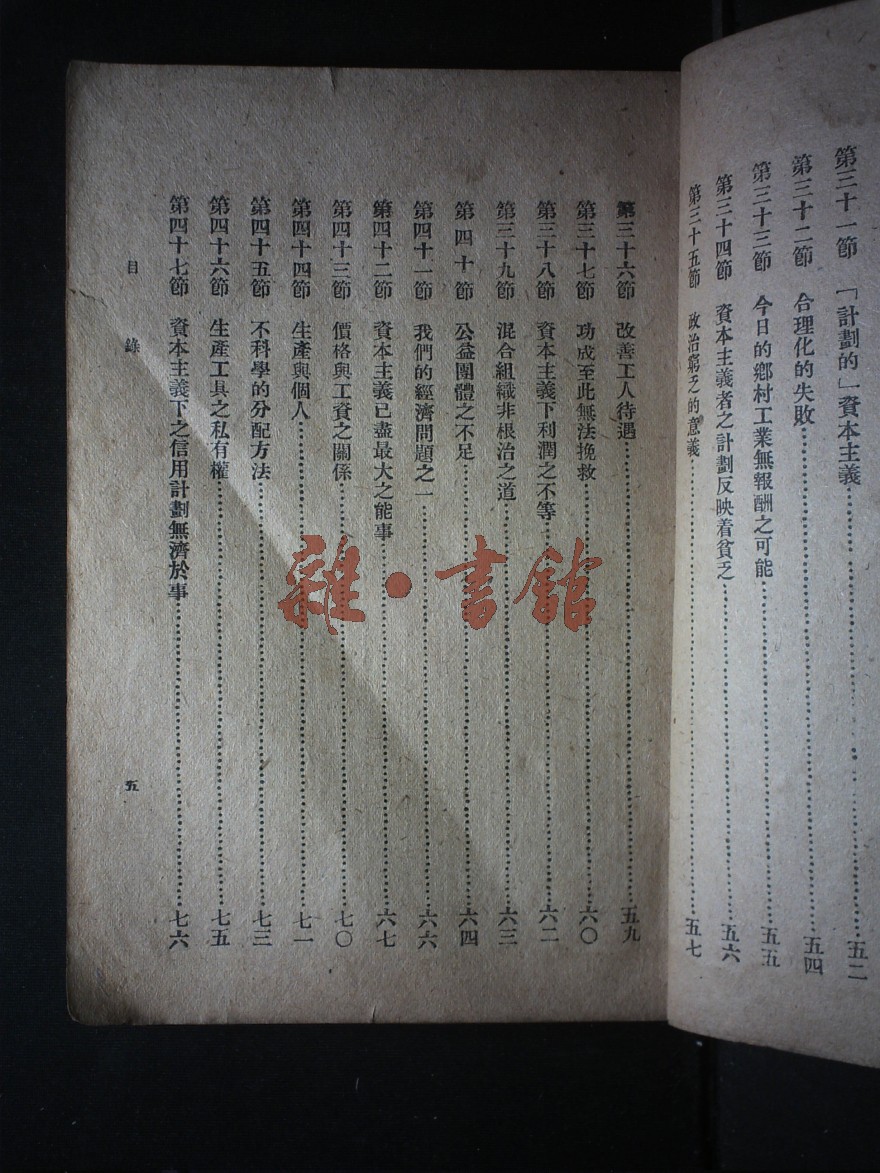 第三十一節　「計劃的」資本主義……五二
第三十二節　合理化的失敗……五四
第三十三節　今日的鄉村工業無報酬之可能……五五
第三十四節　資本主義者之計劃反映着貧乏……五六
第三十五節　政治窮乏的意義……五七
第三十六節　改善工人待遇……五九
第三十七節　功成至此無法挽救……六〇
第三十八節　資本主義下利潤之不等……六二
第三十九節　混合組織非根治之道……六三
第四十節　公益團體之不足……六四
第四十一節　我們的經濟問題之一……六六
第四十二節　資本主義已盡最大之能事……六七
第四十三節　價格與工資之關係……七〇
第四十四節　生產與個人……七一
第四十五節　不科學的分配方法……七三
第四十六節　生產工具之私有權……七五
第四十七節　資本主義下之信用計劃無濟於事……七六
目錄
五
雜·書館